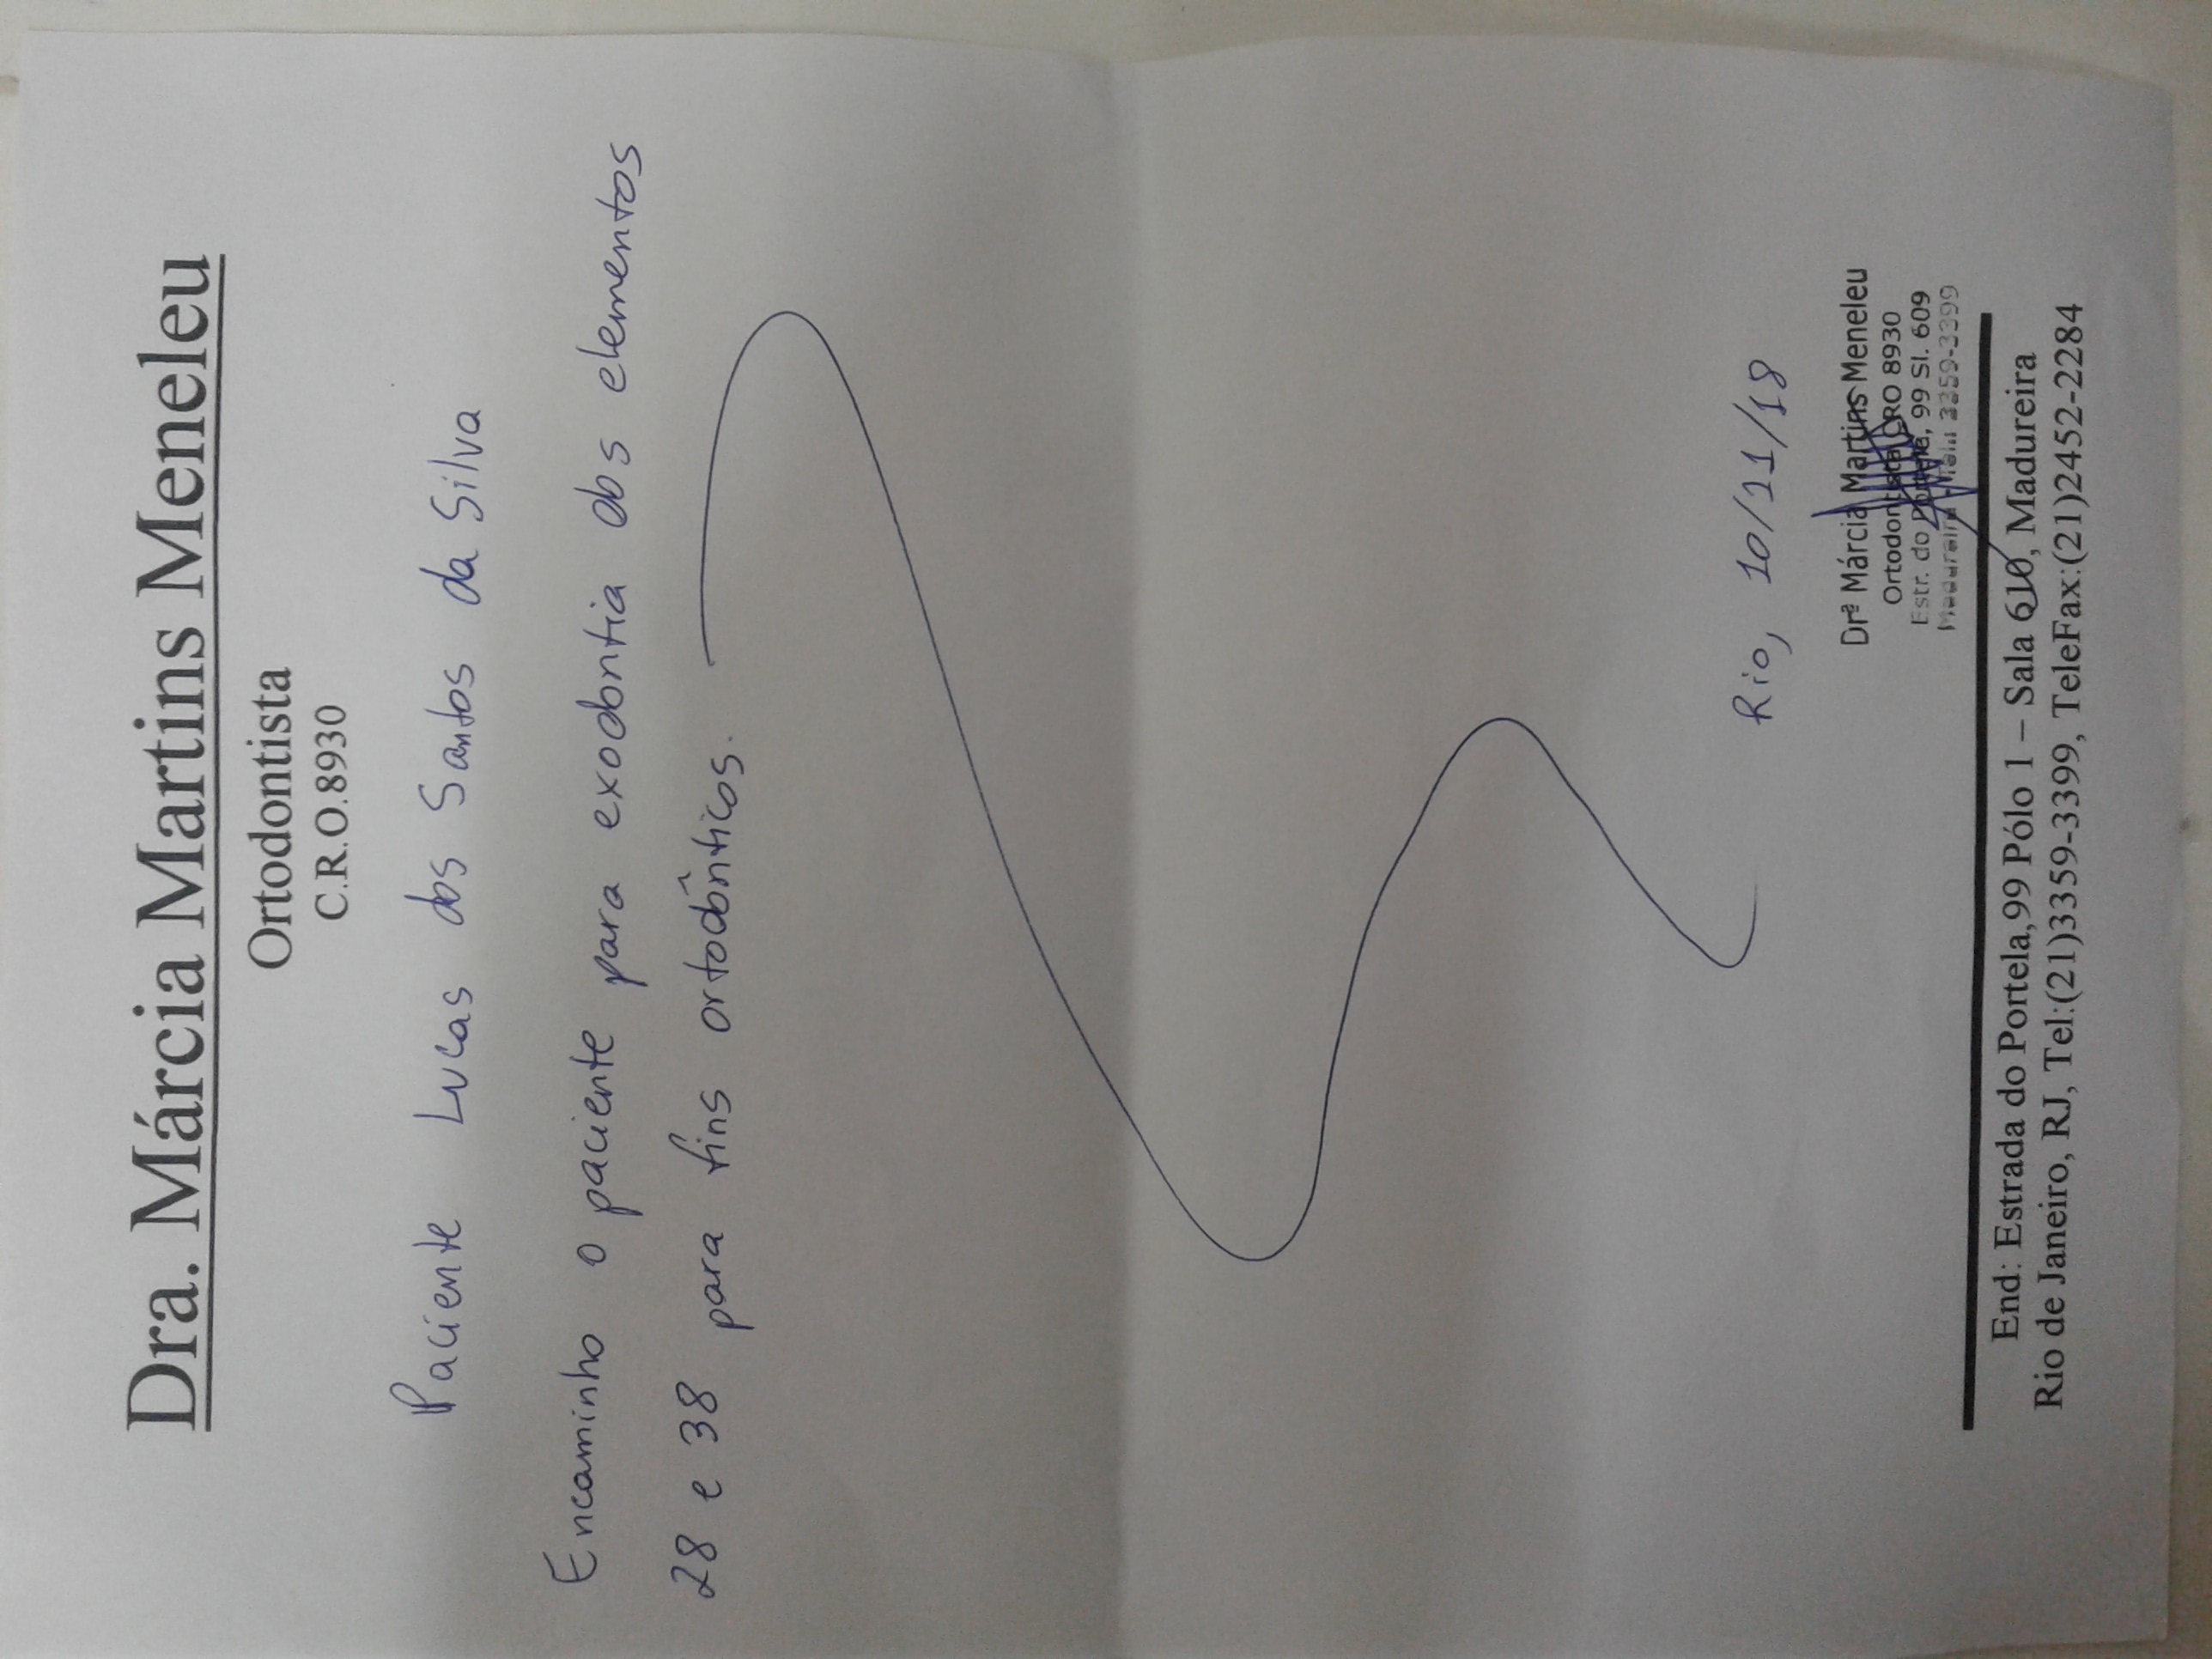 Dra. Márcia Martins Meneleu
Ortodontista
C.R.O.8930
Paciente Lucas dos Santos da Silva
Encaminho o paciente para exodontia dos elementos
28 e 38 para fins ortodônticos.
Rio, 10/11/18
Drª Márcia Martins Meneleu
Ortodontista CRO 8930
Estr. do Portela, 99 Sl. 609
Madureira - Tel: 3359-3399
End: Estrada do Portela,99 Pólo 1 – Sala 610, Madureira
Rio de Janeiro, RJ, Tel:(21)3359-3399, TeleFax:(21)2452-2284